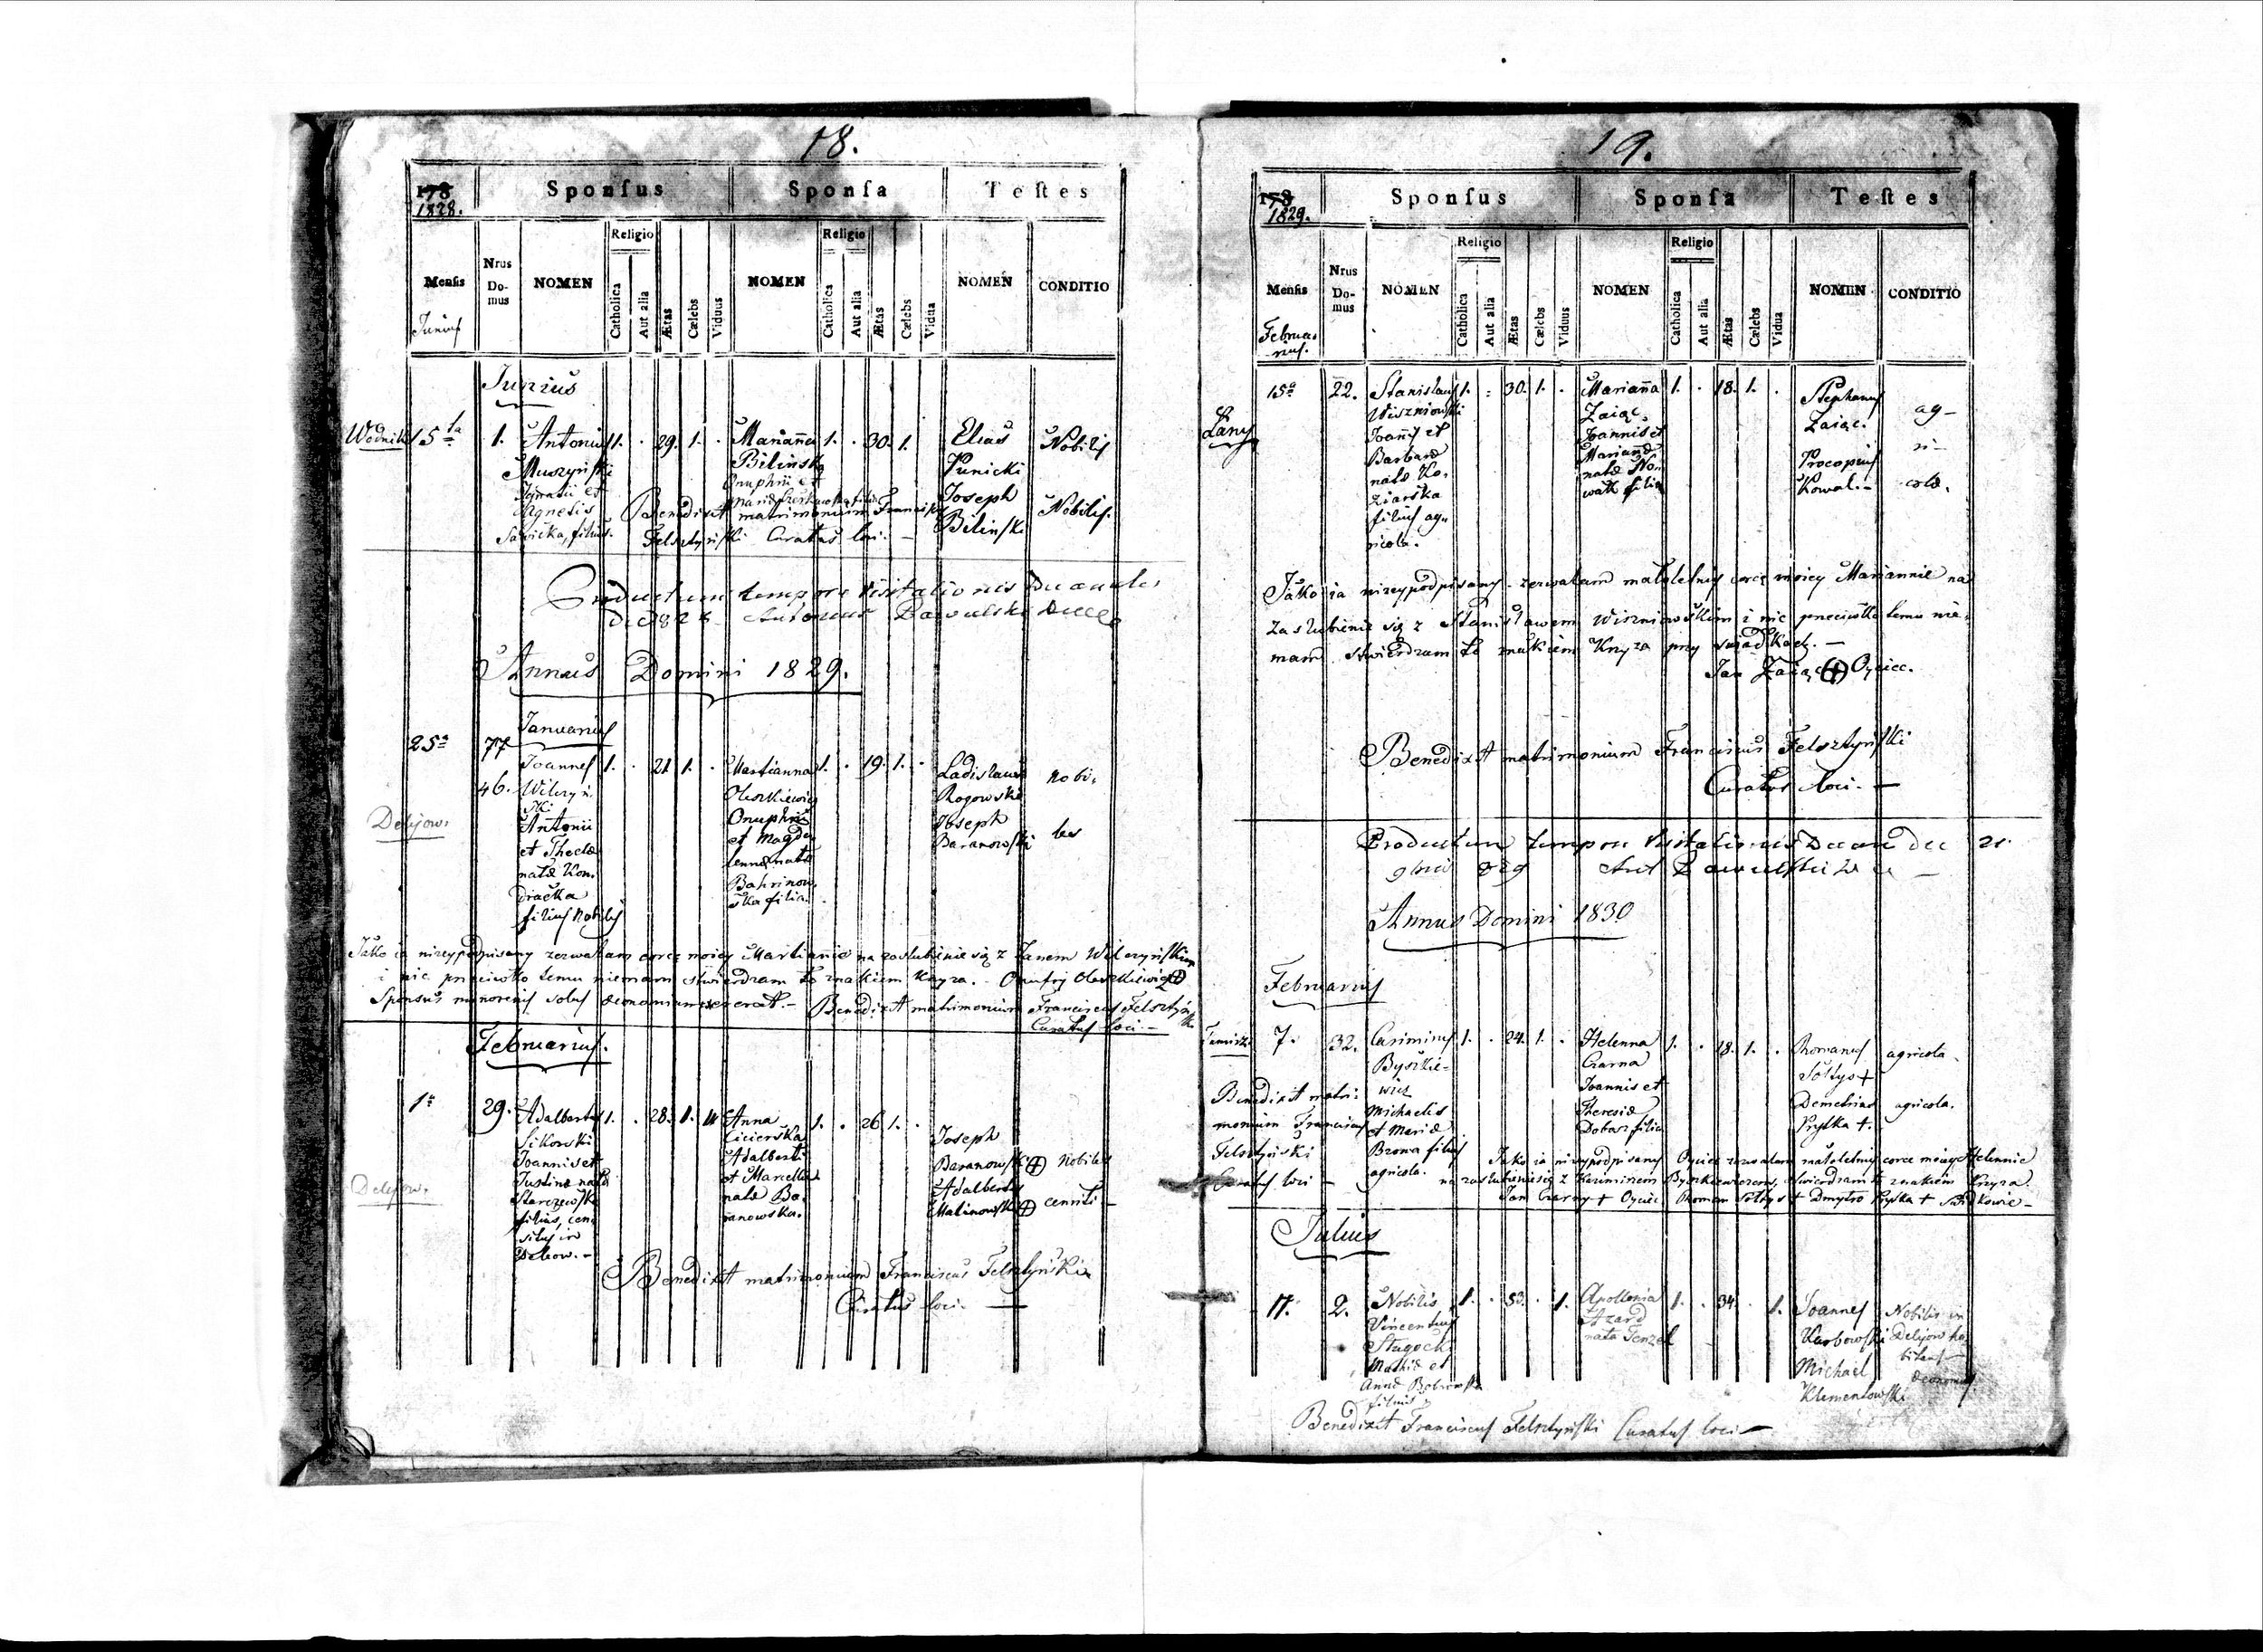 18.
178
1828.
Sponſus
Sponſa
Teſtes
Menſis
Nrus Do-mus
NOMEN
Religio
Catholica
Aut alia
Ætas
Cælebs
Viduus
NOMEN
Religio
Catholica
Aut alia
Ætas
Cælebs
Vidua
NOMEN
CONDITIO
Junius
Junius
15ta
1.
Antonius
Muszyński
Ignatii et
Agnetis
Sawicka, filius.
1. . 29. 1. .
Marianna
Bilinska
Onuphrii et
1. . 30. 1.
Elias
Kunicki
Joseph
Bilinski
Nobilis
Nobilis.
Benedixit matrimonium Franciscus
Felsztyński Curatus loci. —
Productum tempore Visitationis Decanalis
1828 Antonius
Annus Domini 1829.
Januarius
25a
77
46.
Delijow.
Joannes
Wilczyń
ski
Antonii
et Theclæ
natæ Kon.
dracka
filius Nobilis
1. . 21 1. .
Martianna
Oleszkiewicz
Onuphrii
et Magda
lennæ natæ
Bahrinow.
ska filia.
1. . 19. 1. .
Ladislaus
Rogowski
Joseph
Baranowski
Nobi-
les
Jako ia nizeypodpisany zezwalam corce moiey Martiannie na zaslubienie się z Janem Wilczyńskim
i nic przeciwko temu niemam stwierdzam to znakiem Krzyza. - Onufry Oleszkiewicz
Benedixit matrimonium Franciscus Felsztyński
Curatus loci. —
Februarius.
1a
29.
Delijow.
Adalbertus
Sikorski
Joannis et
Justinæ natæ
Starczewska
filius, cen
situs in
1. . 28. 1.
Anna
Cicierska
Adalberti
et Marcellæ
natæ Ba.
ranowska.
1. . 26 1. .
Joseph
Baranowski
Adalbertus
Malinowski
Nobiles
Benedixit matrimonium Franciscus Felsztyński
Curatus loci. —
19.
178
1829.
Sponſus
Sponſa
Teſtes
Menſis
Nrus Do-mus
NOMEN
Religio
Catholica
Aut alia
Ætas
Cælebs
Viduus
NOMEN
Religio
Catholica
Aut alia
Ætas
Cælebs
Vidua
NOMEN
CONDITIO
Februa-
rius.
Łany
15a
22.
Stanislaus
Wiszniowski
Joannis et
Barbaræ
natæ Ko.
ziarska
filius ag-
ricola.
1. 30. 1. .
Marianna
Zaiąc.
Joannis et
Mariannæ
natæ No-
wak filia
1. . 18. 1. .
Stephanus
Zaiąc.
Procopius
Kowal. -
ag-
ri-
colæ.
Jako ia nizeypodpisany zezwalam maloletniey corce moiey Mariannie na
zaslubienie się z Stanisławem Wiszniowskim i nic przeciwko temu nie-
mam stwierdzam to znakiem Krzyza przy swiadkach. —
Jan Zaiąc Oyciec.
Benedixit matrimonium Franciscus Felsztyński
Curatus loci. —
Productum tempore Visitationis
Annus Domini 1830
Februarius
7.
32.
Casimirus
Byszkie-
wicz
Michaelis
et Mariæ
Browa filius
agricola.
1. . 24. 1. .
Helenna
Czarna
Joannis et
Theresiæ
Dobosz filia
1. . 18. 1. .
Romanus
Sołtys +
Demetrius
Prytka +.
agricola.
agricola.
Benedixit matri-
monium Franciscus
Felsztyński
Curatus loci —
Jako ia nizeypodpisany Oyciec zezwalam maloletniey corce moiey Helennie
na zaslubienie się z Kazimirem Byszkiewiczem, stwierdzam to znakiem Krzyza.
Jan Czarny + Oyciec. Roman Sołtys + Dmytro Prytka + Swiadkowie -
Julius
17.
2.
Nobilis
Vincentius
Mathiæ et
Annæ
filius
1. . 53. . 1.
Apollonia
nata
1. . 34. . 1.
Joannes
Karbowski
Michael
Klementowski
Nobilis in
Delijow ha-
bitans
œconomus
Benedixit Franciscus Felsztyński Curatus loci —